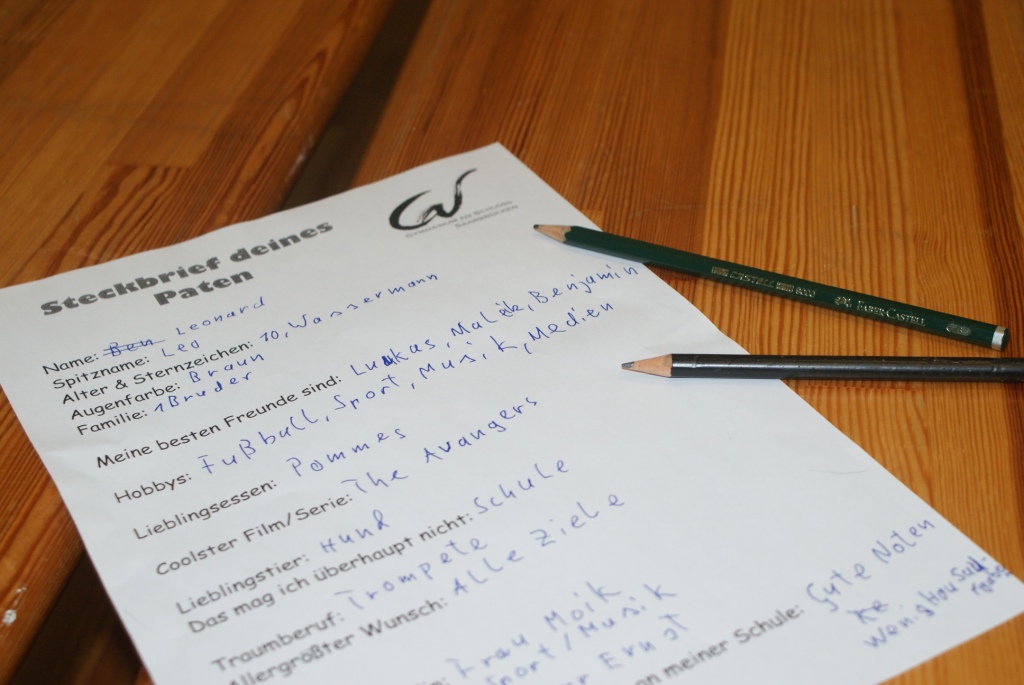 GYMNASIUM AM SCHLOSS
SAARBRÜCKEN
Steckbrief deines
Paten
Name: Ben Leonard
Spitzname: Leo
Alter & Sternzeichen: 10, Wassermann
Augenfarbe: Braun
Familie: 1 Bruder
Meine besten Freunde sind: Lukas, Malek, Benjamin
Hobbys: Fußball, Sport, Musik, Medien
Lieblingsessen: Pommes
Coolster Film/Serie: The Avangers
Lieblingstier: Hund
Das mag ich überhaupt nicht: Schule
Traumberuf: Trompete
Allergrößter Wunsch: Alle Ziele
Frau Moik
Sport/Musik
Ernst
an meiner Schule: Gute Noten
wenig Hausauf-
CASTELL 9000 FABER CASTELL